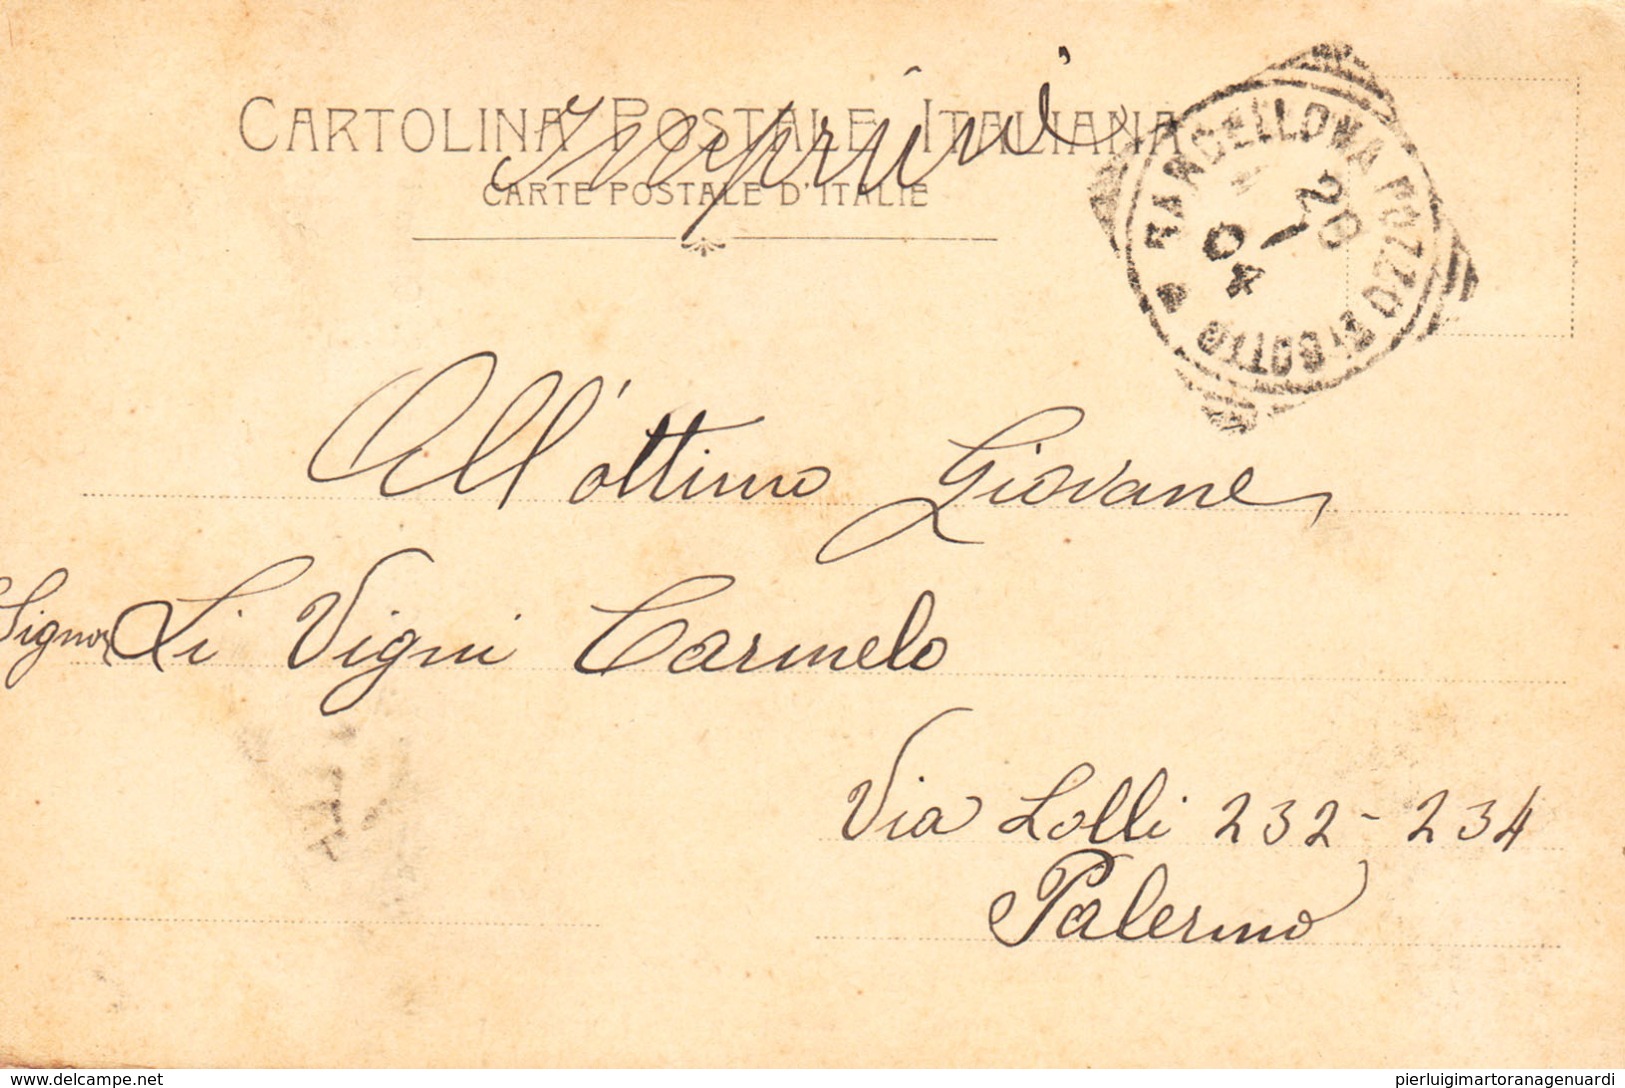 CARTOLINA POSTALE ITALIANA
CARTE POSTALE D'ITALIE
BARCELLONA POZZO DI GOTTO
20
1
04
All'ottimo Giovane
Signor Li Vigni Carmelo
Via Lolli 232 - 234
Palermo
delcampe.net
pierluigimartoranagenuardi